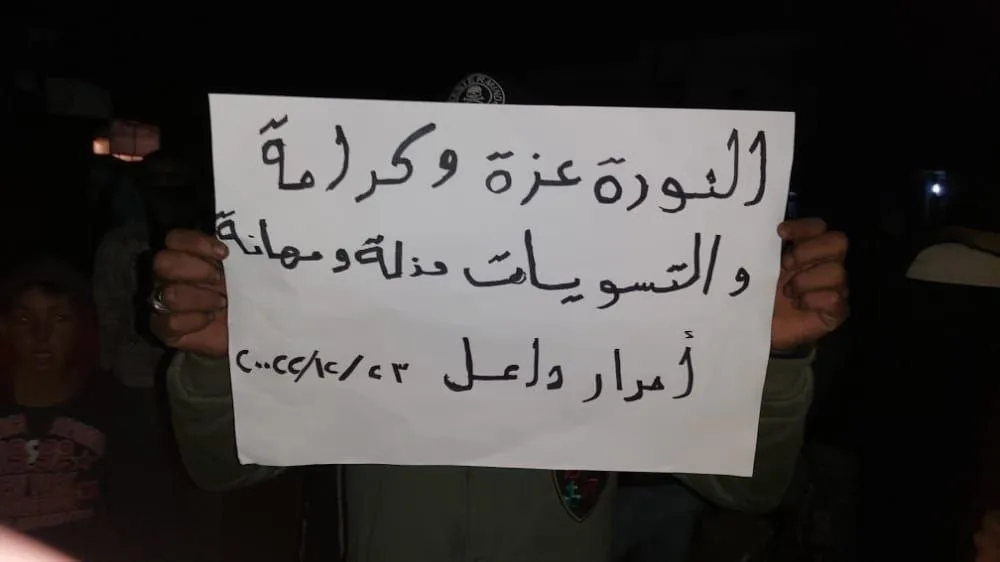 الثورة عزة وكرامة
والتسويات مذلة ومهانة
أحرار داعل ٢٣/١٢/٢٠٠٢٢